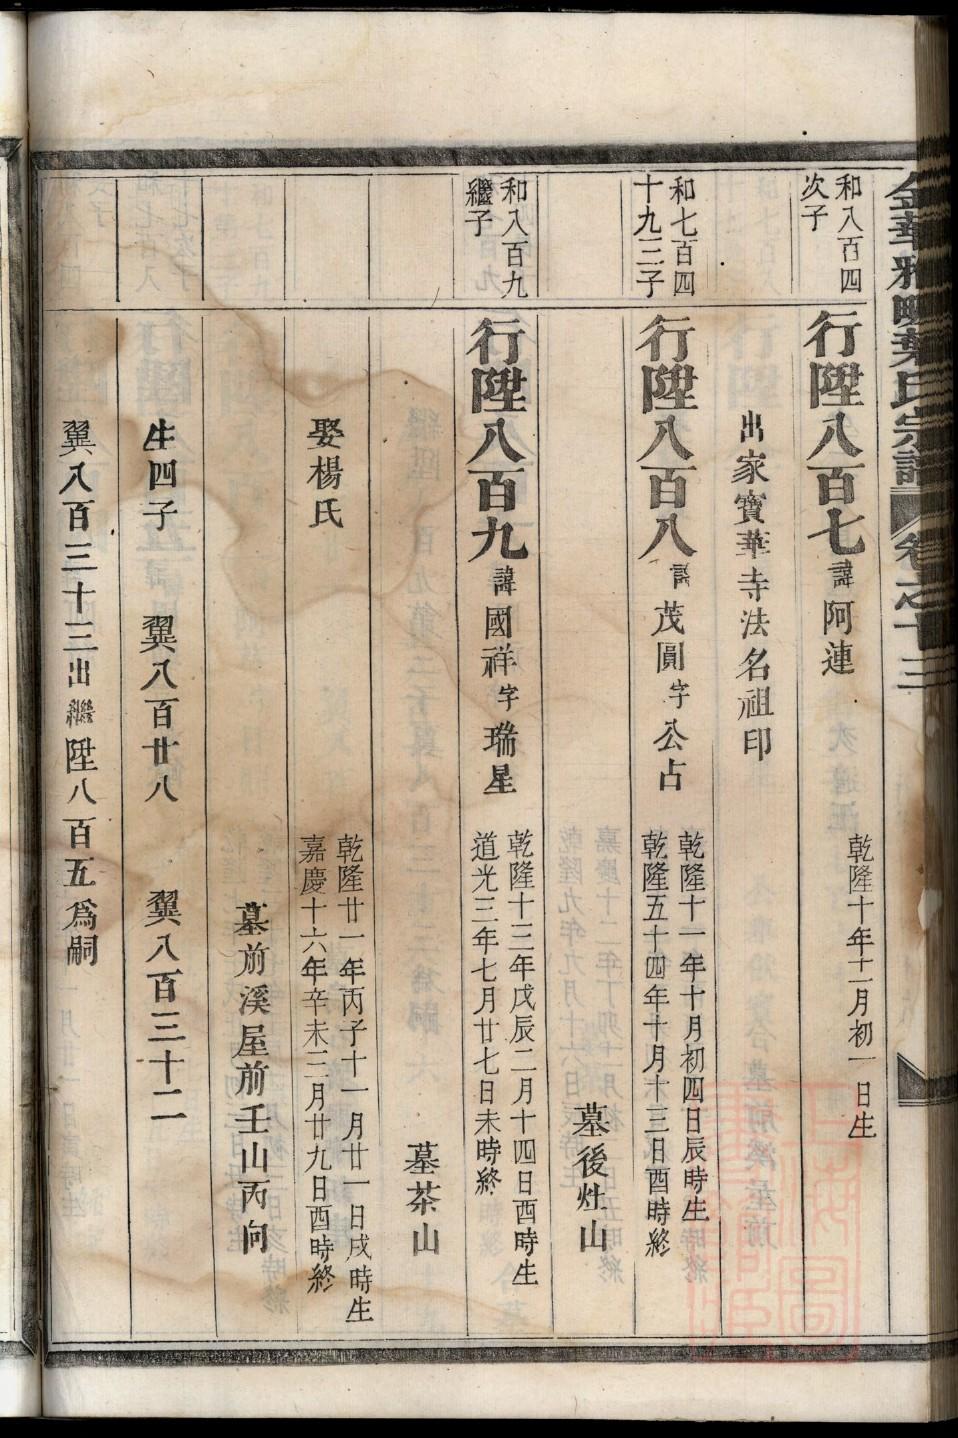 金華雅畈葉氏宗譜 卷之十三
和八百四
次子
行陞八百七 諱阿連
乾隆十年十一月初一日生
出家寶華寺法名祖印
和七百四
十九三子
行陞八百八 諱茂圓 字公占
乾隆十一年十月初四日辰時生
乾隆五十四年十月十三日酉時終
墓後灶山
和八百九
繼子
行陞八百九 諱國祥 字瑞星
乾隆十三年戊辰二月十四日酉時生
道光三年七月廿七日未時終
墓茶山
娶楊氏
乾隆廿一年丙子十一月廿一日戌時生
嘉慶十六年辛未二月廿九日酉時終
墓前溪屋前壬山丙向
生四子 翼八百廿八 翼八百三十二
翼八百三十三出繼陞八百五爲嗣